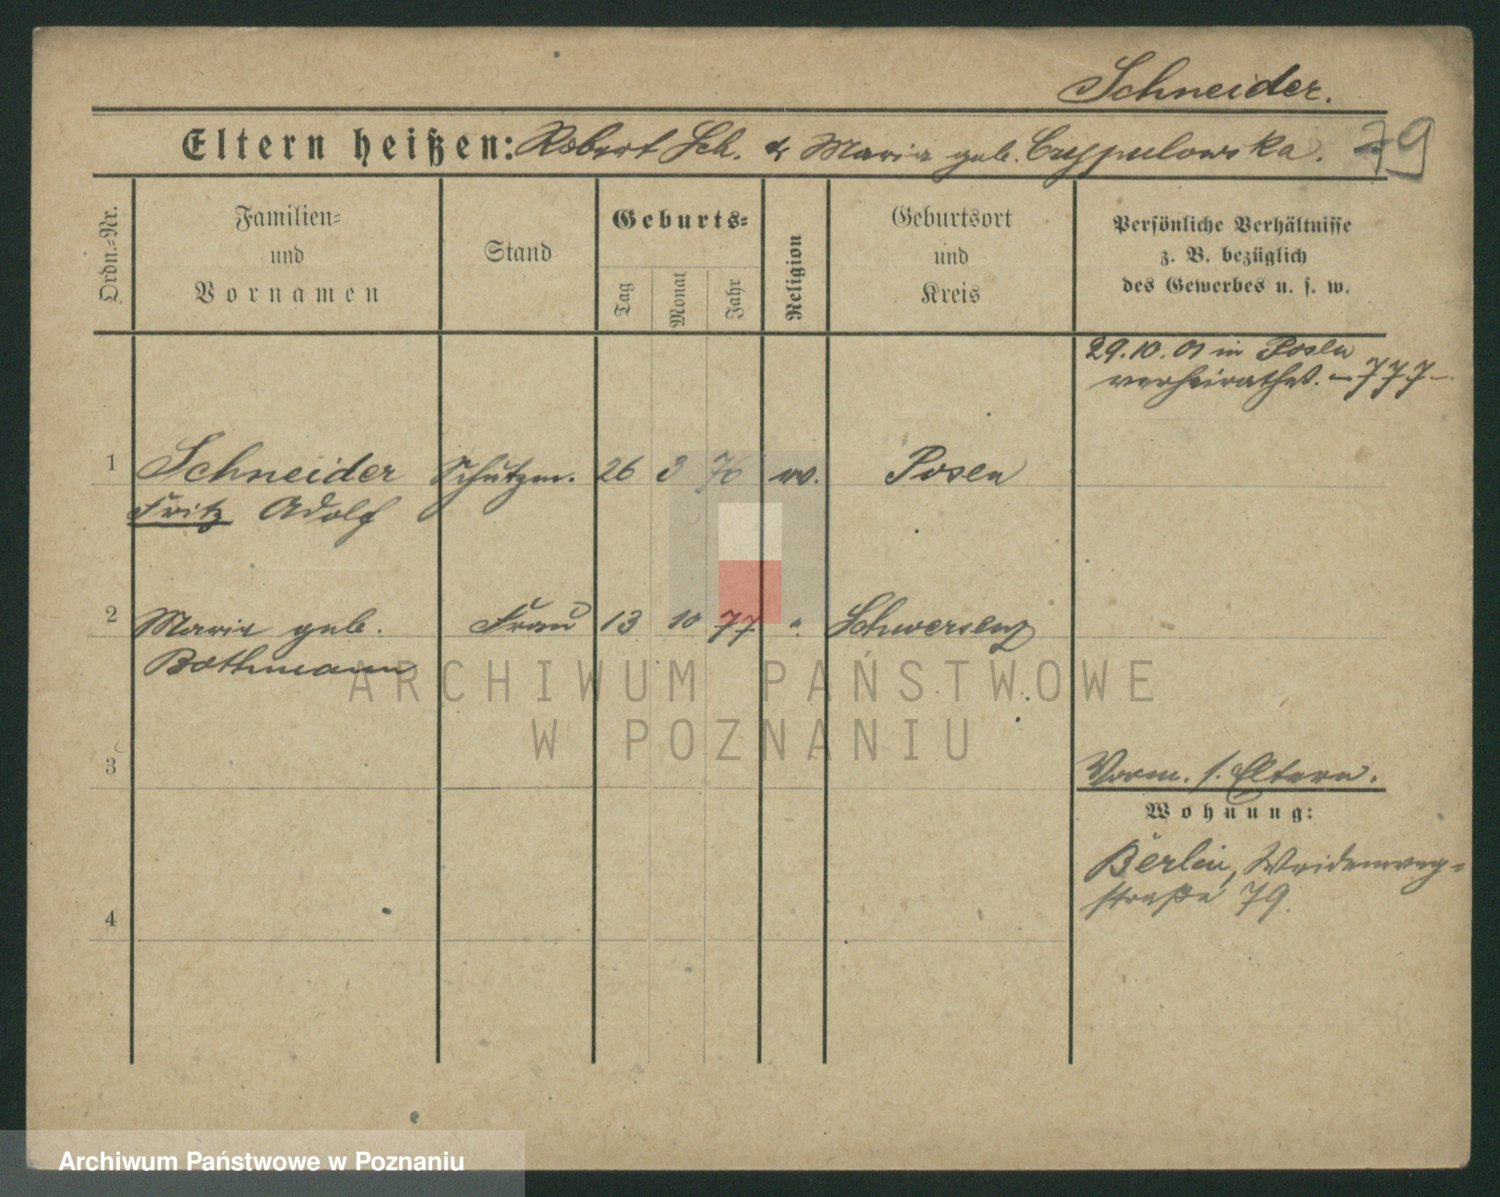 Schneider.
Eltern heißen: Robert Sch. & Maria geb. 79
Ordn.=Nr.
Familien=
und
Vornamen
Stand
Geburts=
Tag
Monat
Jahr
Religion
Geburtsort
und
Kreis
Persönliche Verhältnisse
z. B. bezüglich
des Gewerbes u. s. w.
29.10.01 in Posen
verheirathet. - 777 -
1 Schneider Schutzm. 26 3 76 ev. Posen
Fritz Adolf
2 Maria geb. Frau 13 10 77 " Schwersenz
Bothmann
ARCHIWUM PAŃSTWOWE
W POZNANIU
3
Vorm. s. Eltern.
Wohnung:
Berlin, Weidenweg=
straße 79.
4
Archiwum Państwowe w Poznaniu